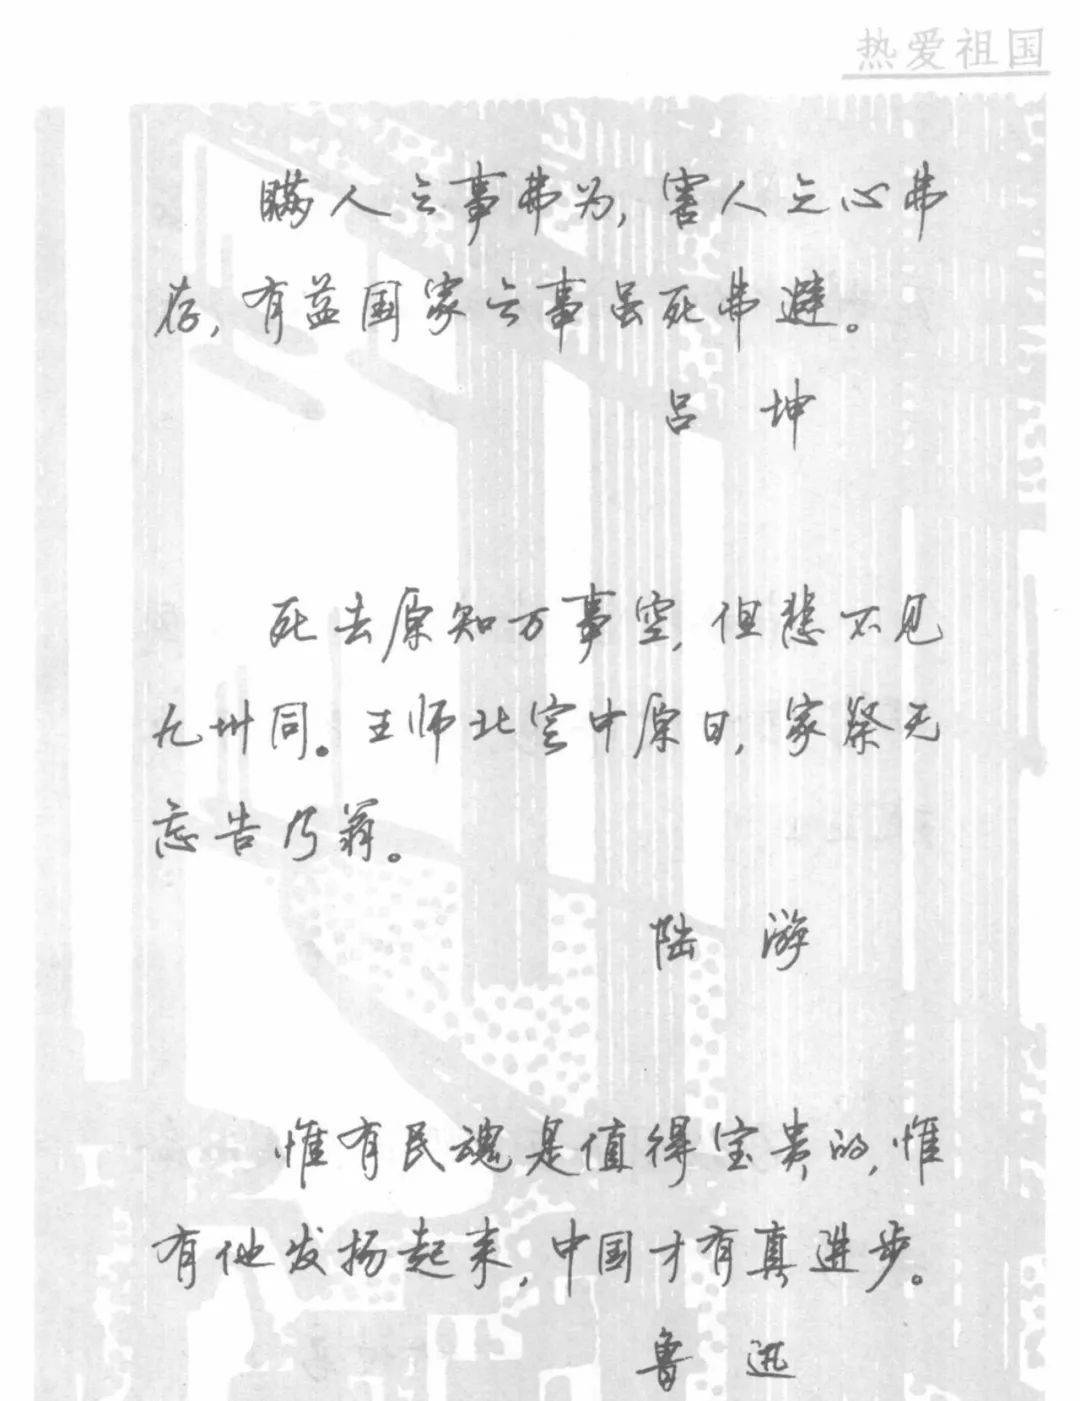 热爱祖国
瞒人之事弗为，害人之心弗
存，有益国家之事虽死弗避。
吕 坤
死去原知万事空，但悲不见
九州同。王师北定中原日，家祭无
忘告乃翁。
陆 游
惟有民魂是值得宝贵的，惟
有他发扬起来，中国才有真进步。
鲁 迅